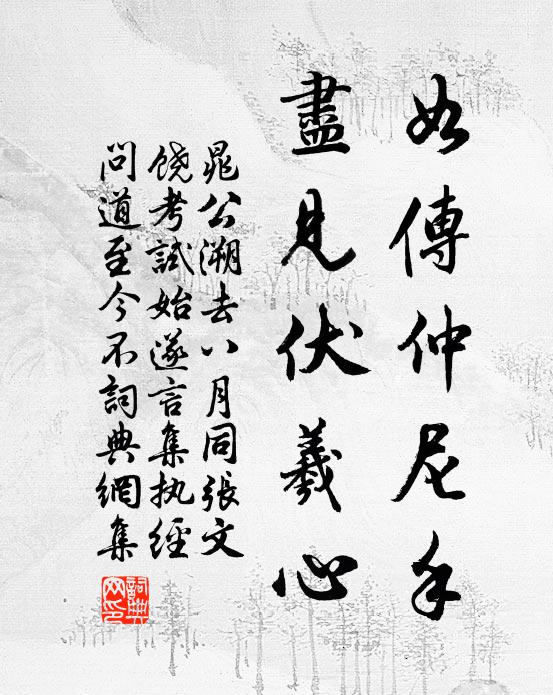 如傳仲尼手
盡見伏羲心
晁公溯去八月同張文
饒考試始遂言集执經
問道至今不詞典網集
詞典網印